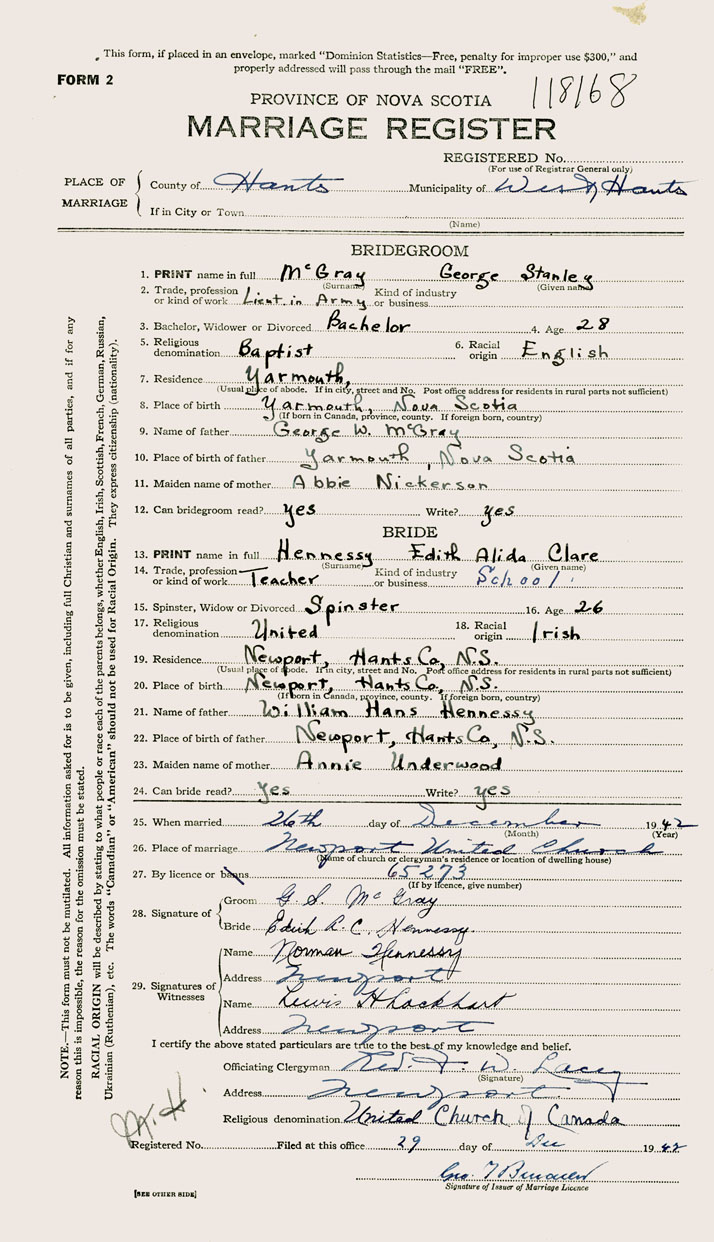 This form, if placed in an envelope, marked "Dominion Statistics—Free, penalty for improper use $300," and
properly addressed will pass through the mail "FREE".
FORM 2
118168
PROVINCE OF NOVA SCOTIA
MARRIAGE REGISTER
REGISTERED No.
(For use of Registrar General only)
PLACE OF MARRIAGE
County of Hants Municipality of West Hants
If in City or Town
(Name)
BRIDEGROOM
1. PRINT name in full McGray George Stanley
(Surname) (Given name)
2. Trade, profession or kind of work Lieut. in Army Kind of industry or business
3. Bachelor, Widower or Divorced Bachelor 4. Age 28
5. Religious denomination Baptist 6. Racial origin English
7. Residence Yarmouth,
(Usual place of abode. If in city, street and No. Post office address for residents in rural parts not sufficient)
8. Place of birth Yarmouth, Nova Scotia
(If born in Canada, province, county. If foreign born, country)
9. Name of father George W. McGray
10. Place of birth of father Yarmouth, Nova Scotia
11. Maiden name of mother Abbie Nickerson
12. Can bridegroom read? yes Write? yes
BRIDE
13. PRINT name in full Hennessy Edith Alida Clare
(Surname) (Given name)
14. Trade, profession or kind of work Teacher Kind of industry or business School
15. Spinster, Widow or Divorced Spinster 16. Age 26
17. Religious denomination United 18. Racial origin Irish
19. Residence Newport, Hants Co, N.S.
(Usual place of abode. If in city, street and No. Post office address for residents in rural parts not sufficient)
20. Place of birth Newport, Hants Co, N.S.
(If born in Canada, province, county. If foreign born, country)
21. Name of father William Hans Hennessy
22. Place of birth of father Newport, Hants Co, N.S.
23. Maiden name of mother Annie Underwood
24. Can bride read? Yes Write? yes
25. When married 26th day of December 1942
(Month) (Year)
26. Place of marriage Newport United Church
(Name of church or clergyman's residence or location of dwelling house)
27. By licence or banns 65273
(If by licence, give number)
28. Signature of
Groom G. S. McGray
Bride Edith A. C. Hennessy
29. Signatures of Witnesses
Name Norman Hennessy
Address Newport
Name Lewis H Lockhart
Address Newport
I certify the above stated particulars are true to the best of my knowledge and belief.
Officiating Clergyman Rev. F. W. Lacey
(Signature)
Address Newport.
Religious denomination United Church of Canada
Registered No. Filed at this office 29 day of Dec 1942
Geo.
Signature of Issuer of Marriage Licence
[SEE OTHER SIDE]
NOTE.—This form must not be mutilated. All information asked for is to be given, including full Christian and surnames of all parties, and if for any
reason this is impossible, the reason for the omission must be stated.
RACIAL ORIGIN will be described by stating to what people or race each of the parents belongs, whether English, Irish, Scottish, French, German, Russian,
Ukrainian (Ruthenian), etc. The words "Canadian" or "American" should not be used for Racial Origin. They express citizenship (nationality).